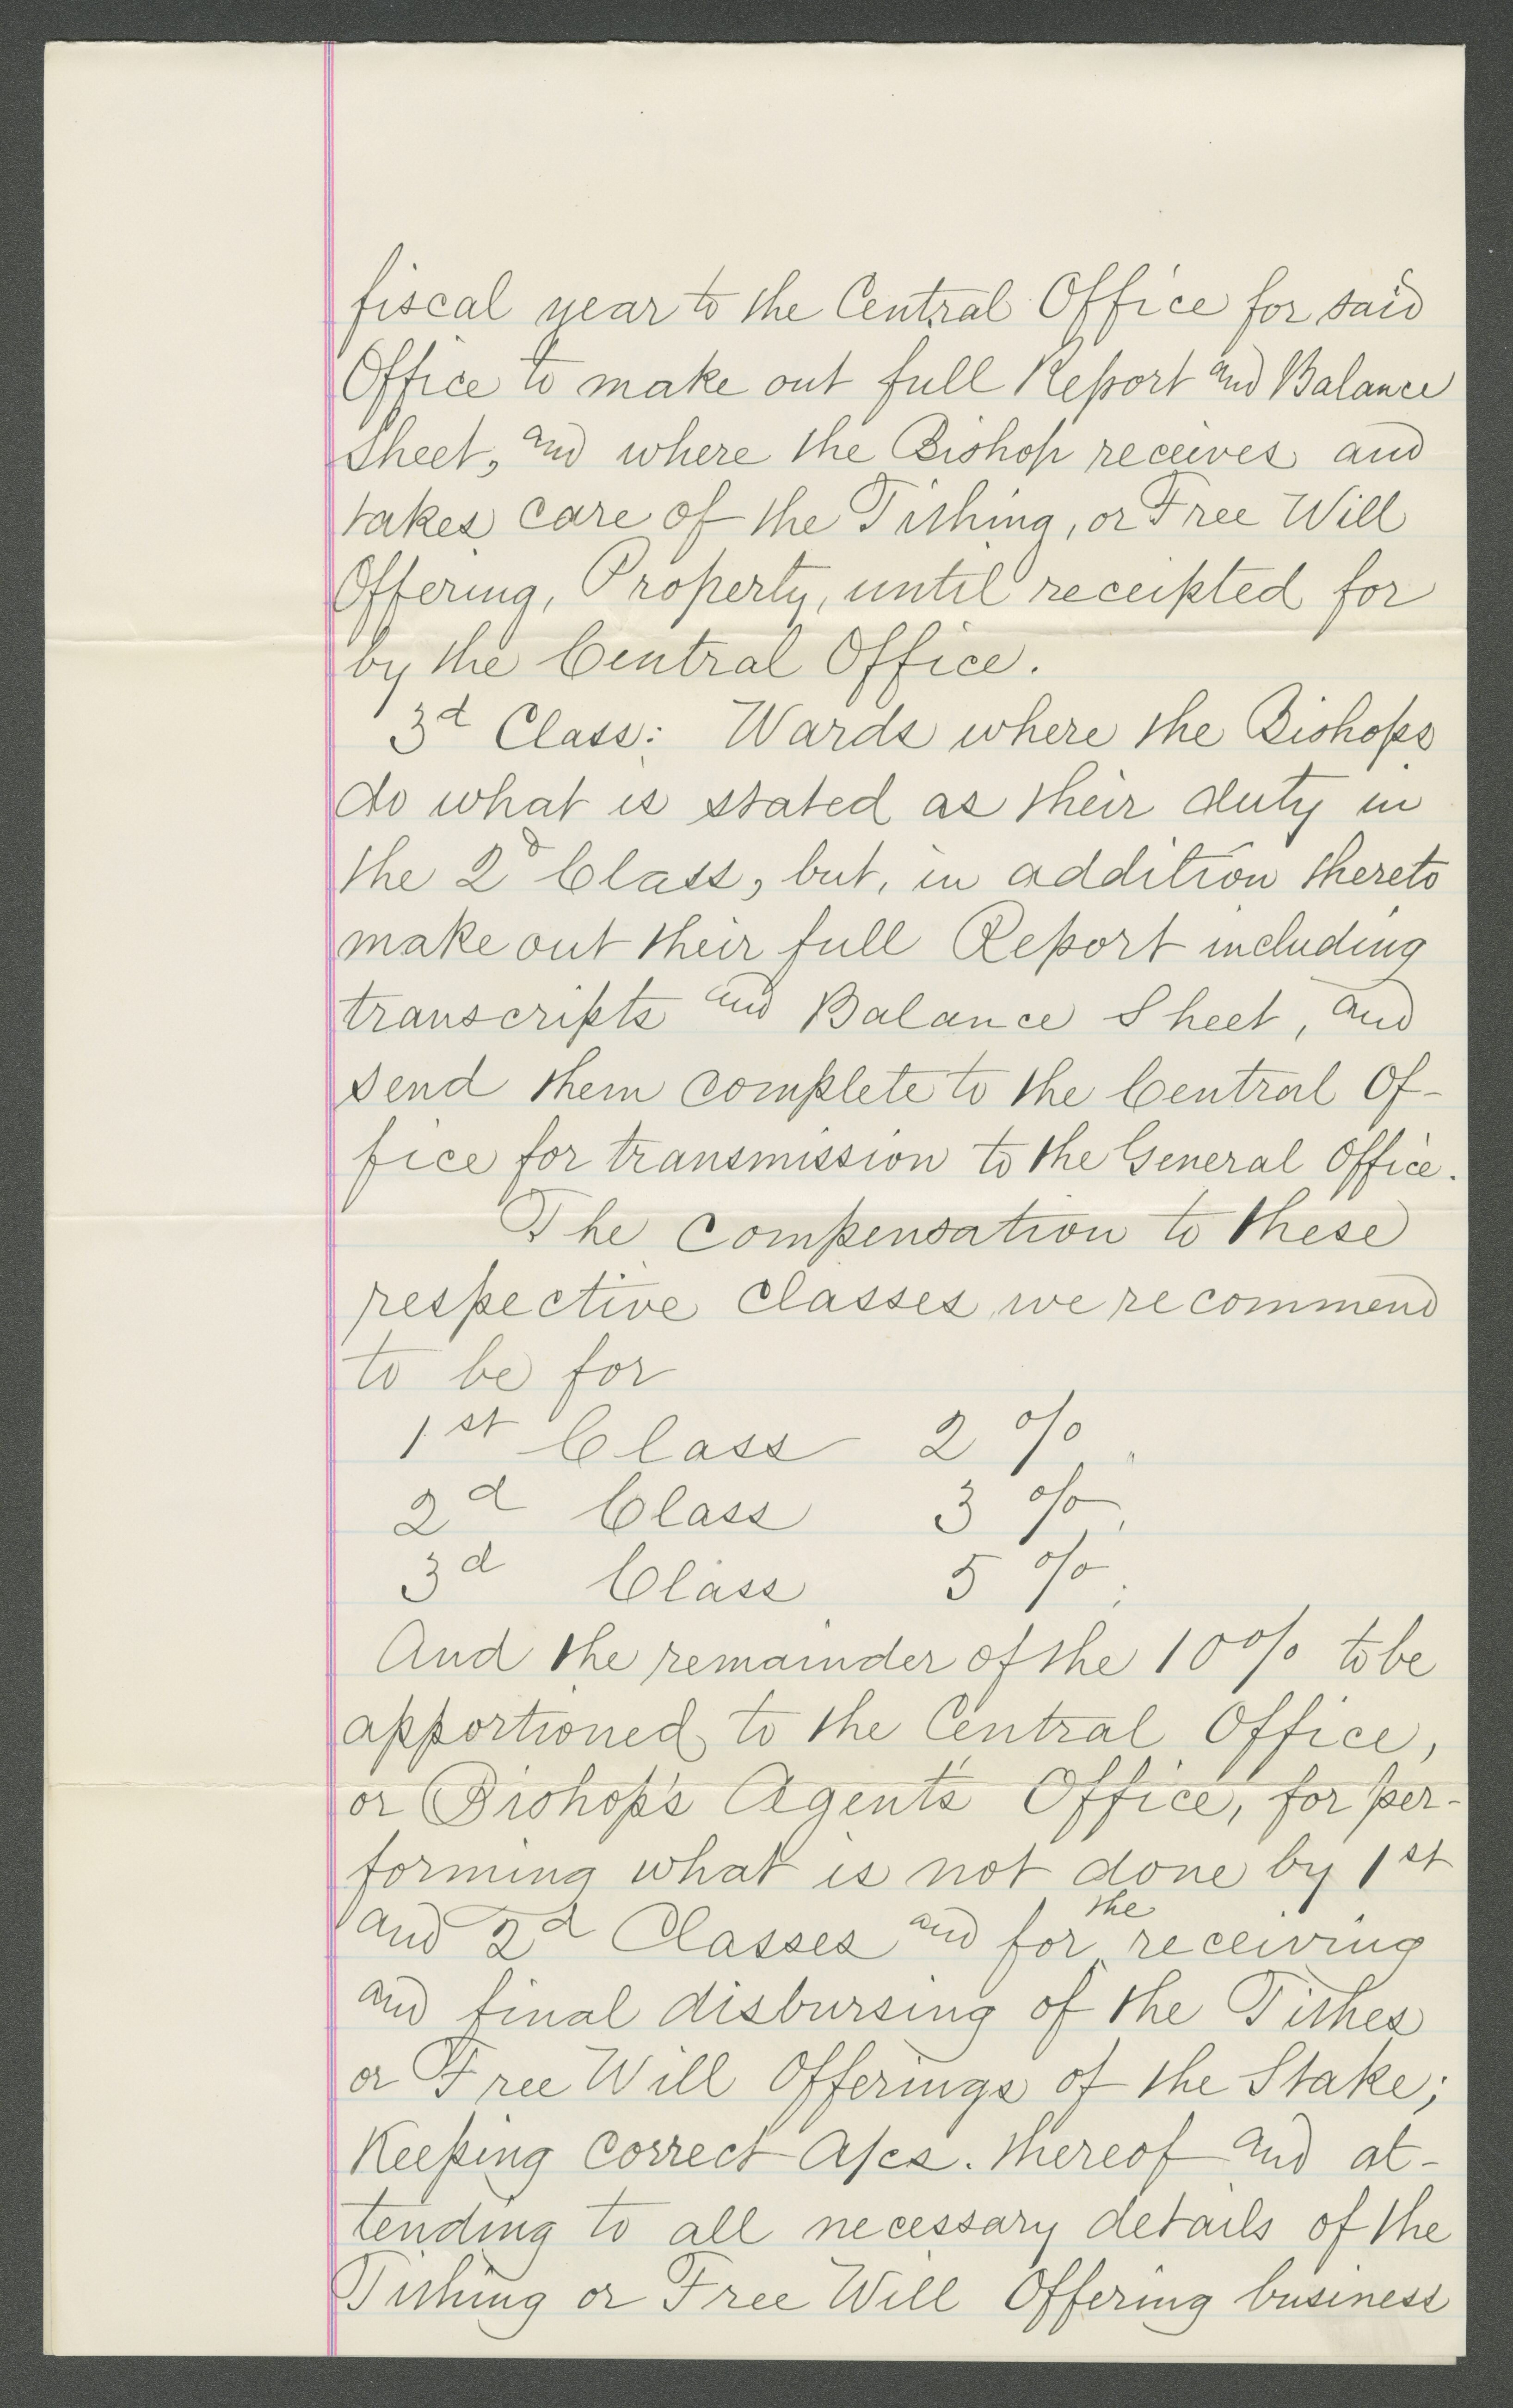 fiscal year to the Central Office for said
Office to make out full Report and Balance
Sheet, and where the Bishop receives and
takes care of the Tithing, or Free Will
Offering, Property, until receipted for
by the Central Office.
3d Class: Wards where the Bishops
do what is stated as their duty in
the 2d Class, but, in addition thereto
make out their full Report including
transcripts and Balance Sheet, and
send them complete to the Central Of-
fice for transmission to the General Office.
The compensation to these
respective classes we recommend
to be for
1st Class 2 %.
2d Class 3 %.
3d Class 5 %;
And the remainder of the 10% to be
apportioned to the Central Office,
or Bishop's Agent's Office, for per-
forming what is not done by 1st
and 2d Classes and for the receiving
and final disbursing of the Tithes
or Free Will Offerings of the Stake;
Keeping correct A/cs. thereof and at-
tending to all necessary details of the
Tithing or Free Will Offering business